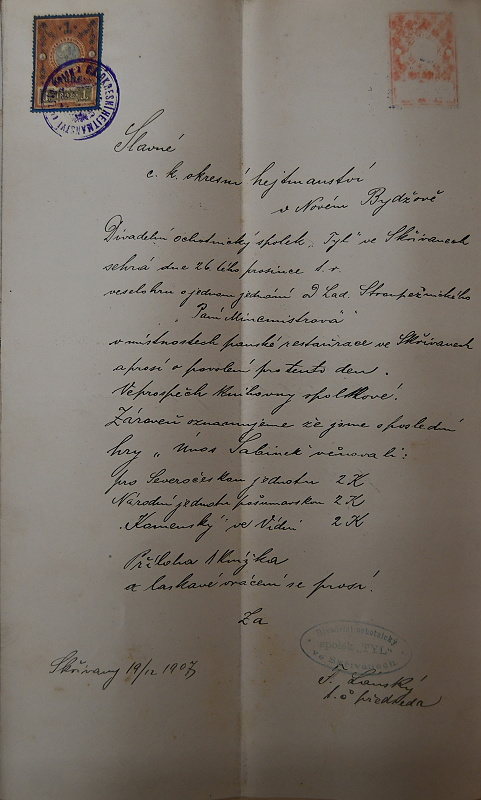 Slavné
c. k. okresní hejtmanství
v Novém Bydžově
Divadelní ochotnický spolek „Tyl" ve Skřivanech
sehrá dne 26. tého prosince t. r.
veselohru o jednom jednání od Lad. Stroupežnického
„Paní Mincmistrová"
v místnostech panské restaurace ve Skřivanech
a prosí o povolení pro tento den.
Veprospěch knihovny spolkové.
Zároveň oznamujeme že jsme s poslední
hry „Únos Sabinek" věnovali:
pro Severočeskou jednotu 2 K
Národní jednotu pošumavskou 2 K
„Komenský" ve Vídni 2 K
Příloha 1 knížka
a laskavé vrácení se prosí.
Za
Divadelní ochotnický
spolek „TYL"
ve Skřivanech
Skřivany 19/12 1907
Lánský
t. č. předseda